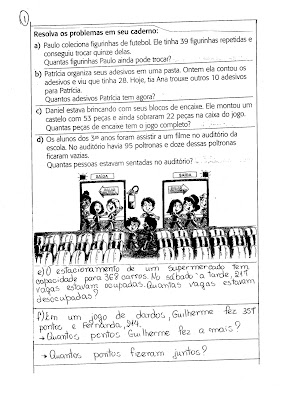 1
Resolva os problemas em seu caderno:
a) Paulo coleciona figurinhas de futebol. Ele tinha 39 figurinhas repetidas e
conseguiu trocar quinze delas.
Quantas figurinhas Paulo ainda pode trocar?
b) Patrícia organiza seus adesivos em uma pasta. Ontem ela contou os
adesivos e viu que tinha 28. Hoje, tia Ana trouxe outros 10 adesivos
para Patrícia.
Quantos adesivos Patrícia tem agora?
c) Daniel estava brincando com seus blocos de encaixe. Ele montou um
castelo com 53 peças e ainda sobraram 22 peças na caixa do jogo.
Quantas peças de encaixe tem o jogo completo?
d) Os alunos dos 3ºs anos foram assistir a um filme no auditório da
escola. No auditório havia 95 poltronas e doze dessas poltronas
ficaram vazias.
Quantas pessoas estavam sentadas no auditório?
SAÍDA
SAÍDA
e) O estacionamento de um supermercado tem
capacidade para 368 carros. No sábado à tarde, 217
vagas estavam ocupadas. Quantas vagas estavam
desocupadas?
f) Em um jogo de dardos, Guilherme fez 357
pontos e Fernanda, 214.
→ Quantos pontos Guilherme fez a mais?
→ Quantos pontos fizeram juntos?